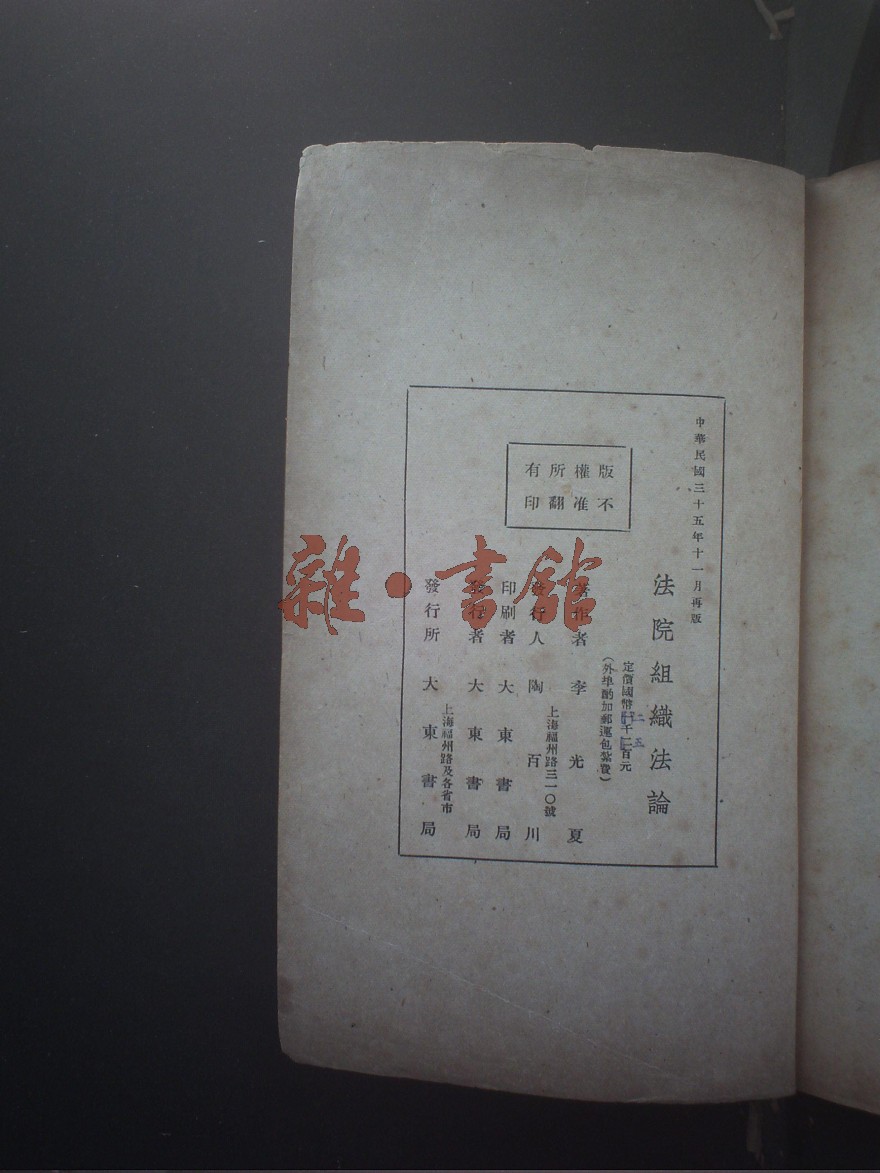 中華民國三十五年十一月再版
法院組織法論
定價國幣 千二百元
二五
（外埠酌加郵運包紮費）
版權所有
不准翻印
著作者 李光夏
發行人 陶百川
上海福州路三一〇號
印刷者 大東書局
發行者 大東書局
發行所 大東書局
上海福州路及各省市
雜·書館